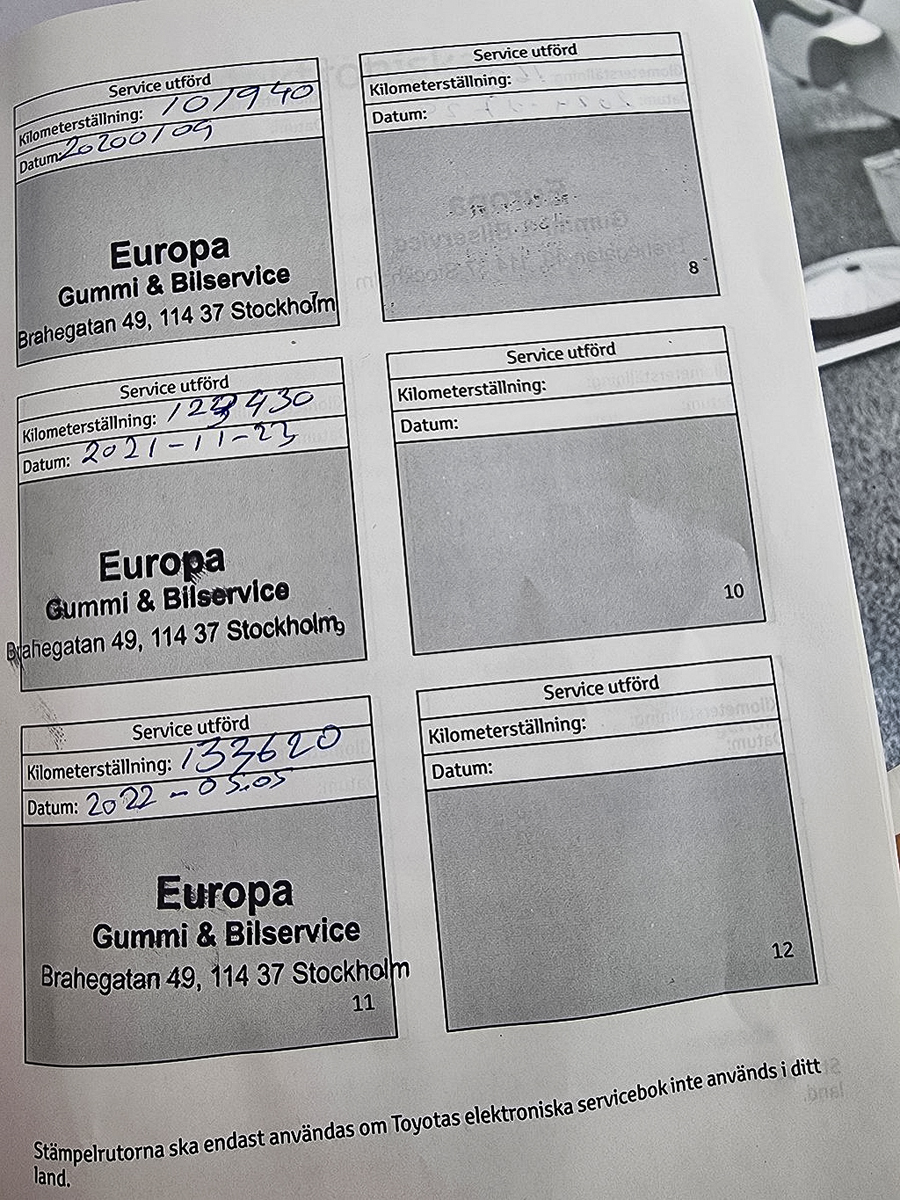 Service utförd
Kilometerställning: 101940
Datum: 20200109
Europa
Gummi & Bilservice
Brahegatan 49, 114 37 Stockholm
7
Service utförd
Kilometerställning:
Datum:
8
Service utförd
Kilometerställning: 123430
Datum: 2021-11-23
Europa
Gummi & Bilservice
Brahegatan 49, 114 37 Stockholm
9
Service utförd
Kilometerställning:
Datum:
10
Service utförd
Kilometerställning: 133620
Datum: 2022-05.05
Europa
Gummi & Bilservice
Brahegatan 49, 114 37 Stockholm
11
Service utförd
Kilometerställning:
Datum:
12
Stämpelrutorna ska endast användas om Toyotas elektroniska servicebok inte används i ditt
land.